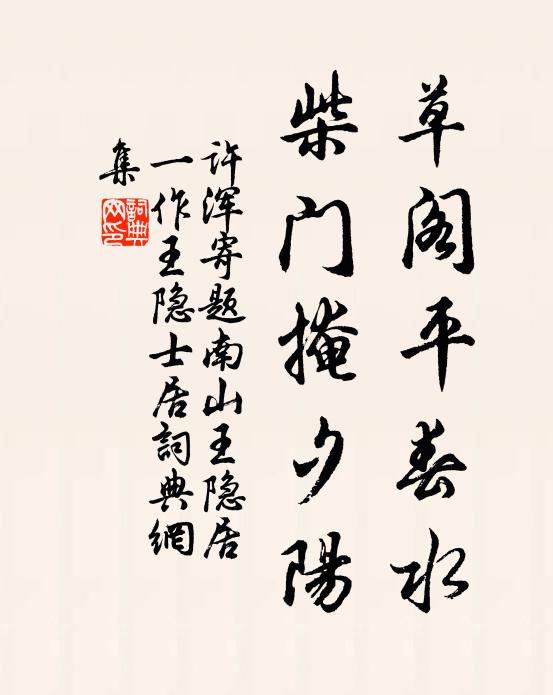 草阁平春水
柴门掩夕陽
许浑寄题南山王隐居
一作王隐士居詞典網
集
詞典网印